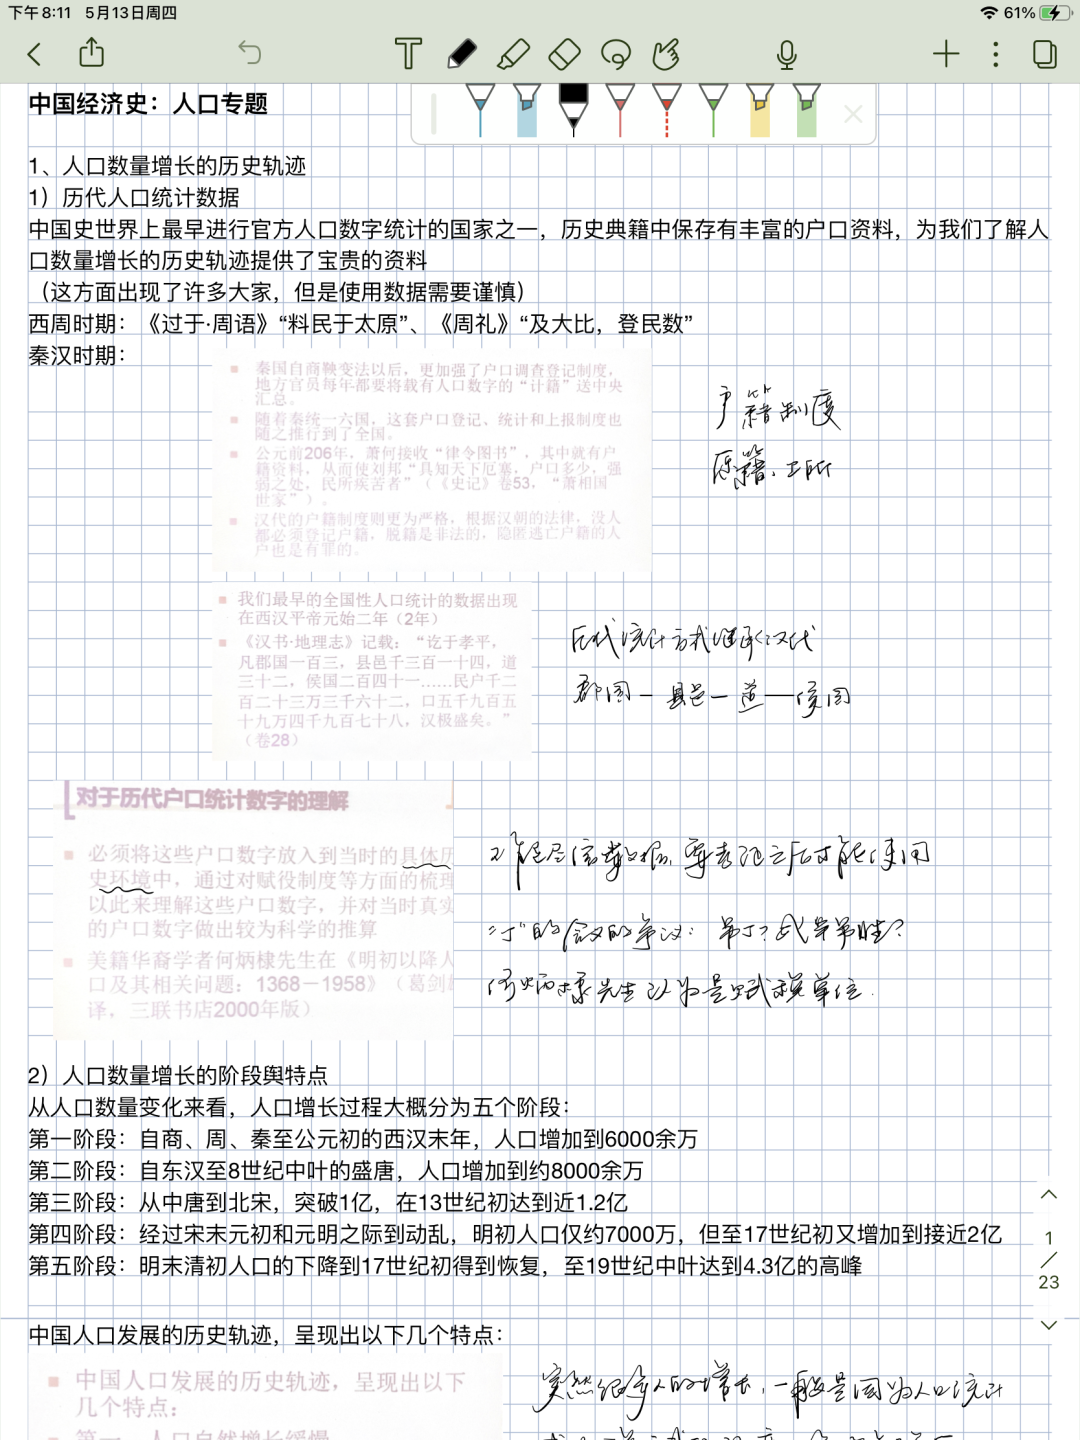 下午8:11 5月13日周四
61%
中国经济史：人口专题
1、人口数量增长的历史轨迹
1）历代人口统计数据
中国史世界上最早进行官方人口数字统计的国家之一，历史典籍中保存有丰富的户口资料，为我们了解人
口数量增长的历史轨迹提供了宝贵的资料
（这方面出现了许多大家，但是使用数据需要谨慎）
西周时期：《过于·周语》“料民于太原”、《周礼》“及大比，登民数”
秦汉时期：
秦国自商鞅变法以后，更加强了户口调查登记制度，
地方官员每年都要将载有人口数字的“计籍”送中央
汇总。
随着秦统一六国，这套户口登记、统计和上报制度也
随之推行到了全国。
公元前206年，萧何接收“律令图书”，其中就有户
籍资料，从而使刘邦“具知天下厄塞，户口多少，强
弱之处，民所疾苦者”（《史记》卷53，“萧相国
世家”）。
汉代的户籍制度则更为严格，根据汉朝的法律，没人
都必须登记户籍，脱籍是非法的，隐匿逃亡户籍的人
户也是有罪的。
户籍制度
原籍、
我们最早的全国性人口统计的数据出现
在西汉平帝元始二年（2年）
《汉书·地理志》记载：“讫于孝平，
凡郡国一百三，县邑千三百一十四，道
三十二，侯国二百四十一……民户千二
百二十三万三千六十二，口五千九百五
十九万四千九百七十八，汉极盛矣。”
（卷28）
后代统计方式继承汉代
郡国一县邑一道一侯国
对于历代户口统计数字的理解
必须将这些户口数字放入到当时的具体历
史环境中，通过对赋役制度等方面的梳理
以此来理解这些户口数字，并对当时真实
的户口数字做出较为科学的推算
美籍华裔学者何炳棣先生在《明初以降人
口及其相关问题：1368－1958》（葛剑雄
译，三联书店2000年版）
不能尽信数据，要考证之后才能使用
“丁”的含义的争议：男丁？成年男性？
何炳棣先生认为是赋税单位.
2）人口数量增长的阶段舆特点
从人口数量变化来看，人口增长过程大概分为五个阶段：
第一阶段：自商、周、秦至公元初的西汉末年，人口增加到6000余万
第二阶段：自东汉至8世纪中叶的盛唐，人口增加到约8000余万
第三阶段：从中唐到北宋，突破1亿，在13世纪初达到近1.2亿
第四阶段：经过宋末元初和元明之际到动乱，明初人口仅约7000万，但至17世纪初又增加到接近2亿
第五阶段：明末清初人口的下降到17世纪初得到恢复，至19世纪中叶达到4.3亿的高峰
1
23
中国人口发展的历史轨迹，呈现出以下几个特点：
中国人口发展的历史轨迹，呈现出以下
几个特点：
第一，人口自然增长缓慢
突然很多人的增长，一般是因为人口统计